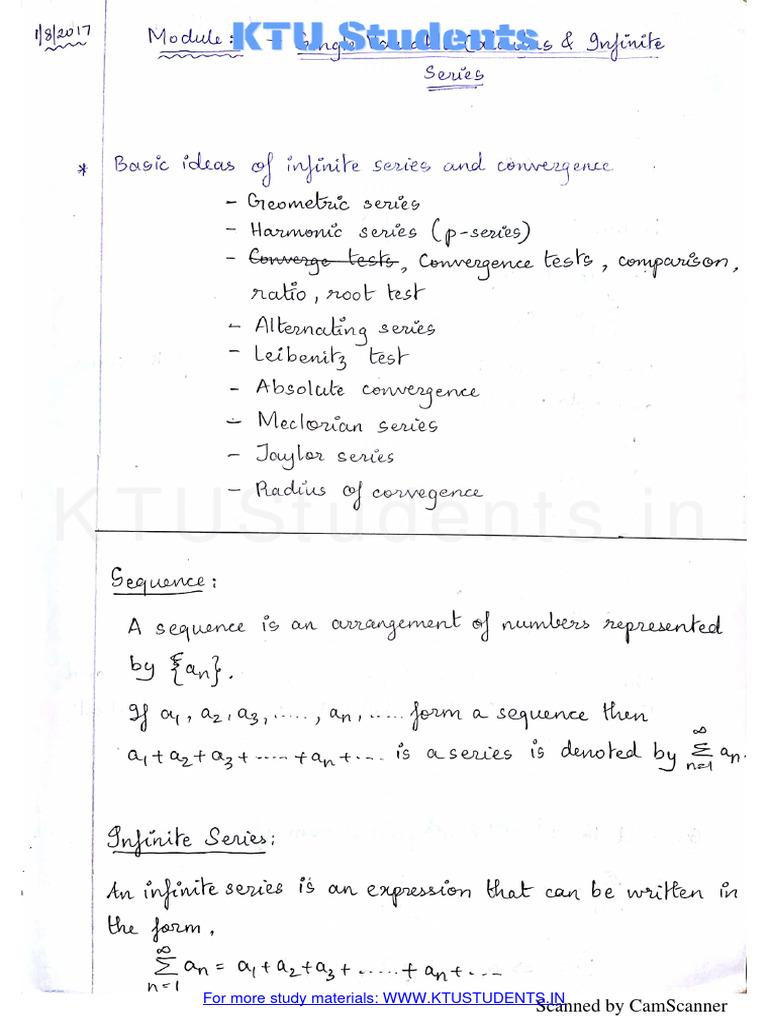 1/8/2017
Module: - Single & Infinite
KTU Students
Series
* Basic ideas of infinite series and convergence
- Geometric series
- Harmonic series (p-series)
- Converge tests, Convergence tests, comparison,
ratio, root test
- Alternating series
- Leibenitz test
- Absolute convergence
- Meclorian series
- Taylor series
- Radius of convegence
KTUStudents.in
Sequence:
A sequence is an arrangement of numbers represented
by {an}.
If a1, a2, a3, ....., an, ..... form a sequence then
a1+a2+a3+.....+an+... is a series is denoted by ∞Σn=1 an.
Infinite Series:
An infinite series is an expression that can be written in
the form,
∞Σn=1 an = a1+a2+a3+.....+an+...
For more study materials: WWW.KTUSTUDENTS.IN
Scanned by CamScanner